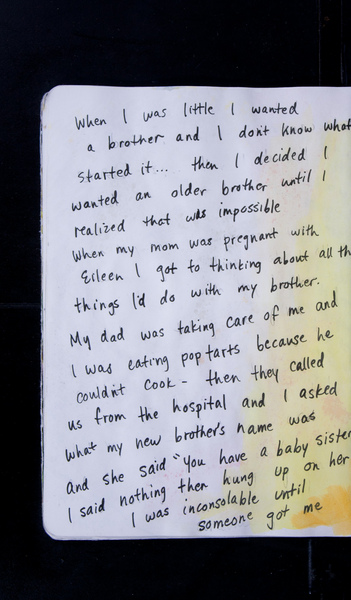 When I was little I wanted
a brother and I don't know what
started it... then I decided I
wanted an older brother until I
realized that was impossible
When my mom was pregnant with
Eileen I got to thinking about all th
things I'd do with my brother.
My dad was taking care of me and
I was eating pop tarts because he
couldn't cook - then they called
us from the hospital and I asked
what my new brother's name was
and she said "You have a baby sister
I said nothing then hung up on her
I was inconsolable until
someone got me